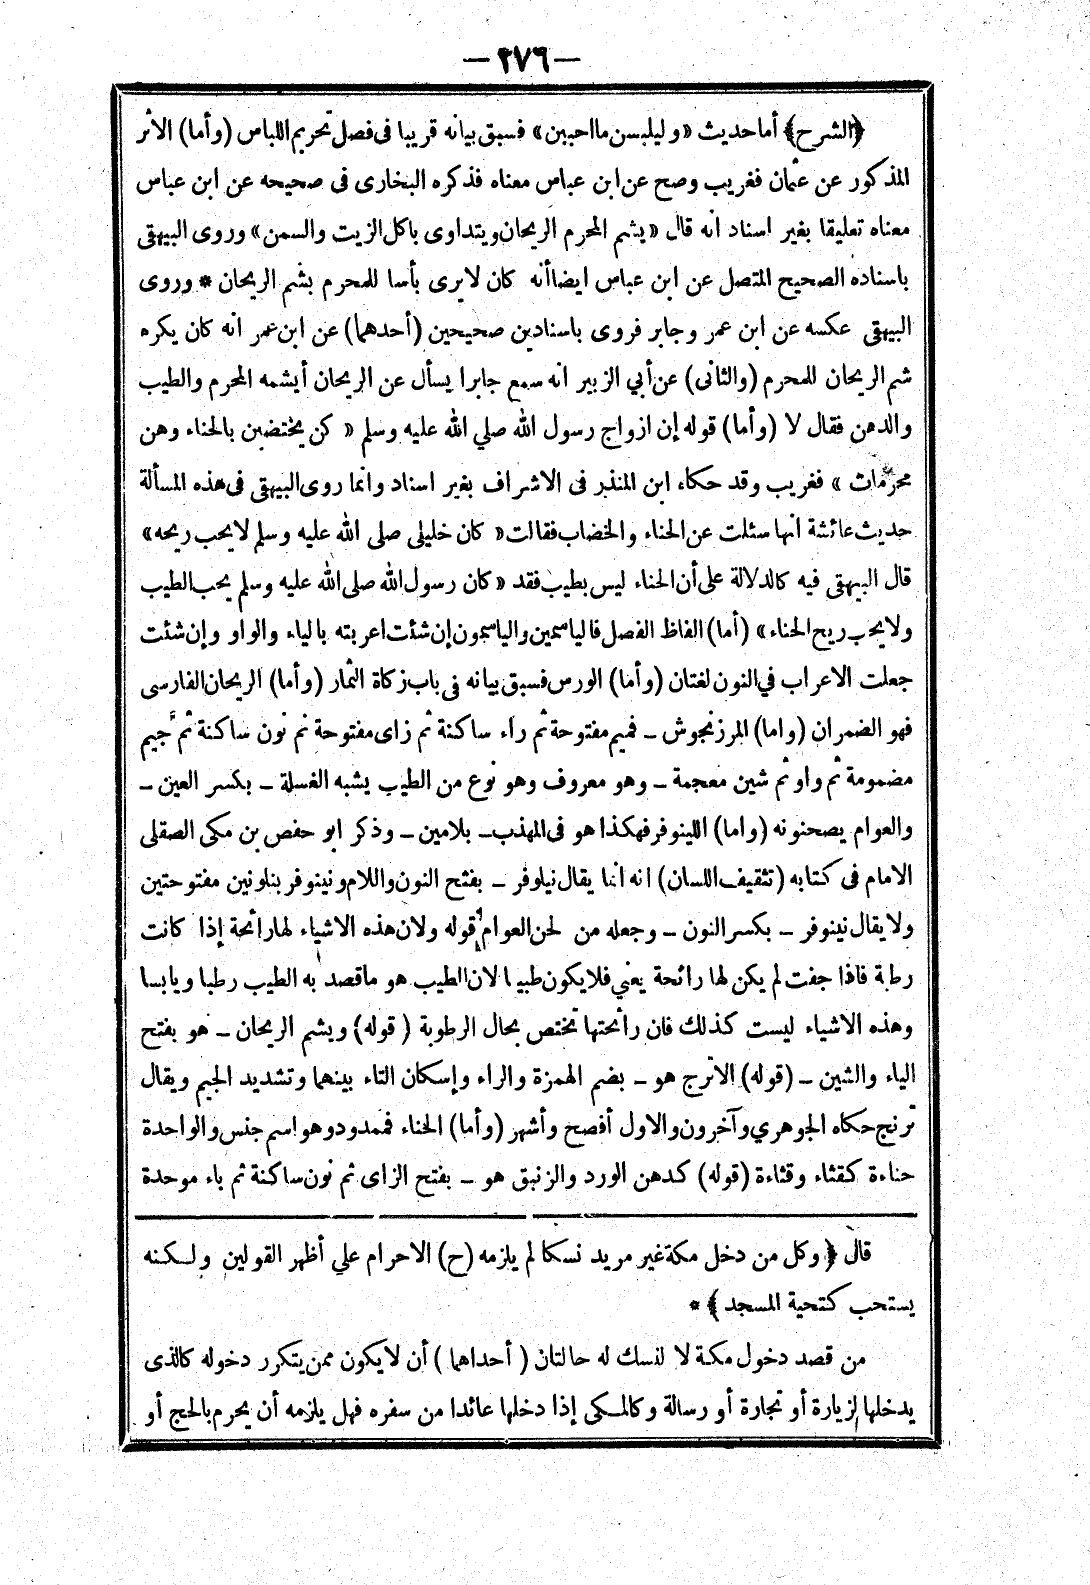 — ٢٧٦ —
﴿الشرح﴾ أما حديث « وليلبسن ما احببن » فسبق بيانه قريبا فى فصل تحريم اللباس (وأما) الاثر
المذكور عن عثمان فغريب وصح عن ابن عباس معناه فذكره البخارى فى صحيحه عن ابن عباس
معناه تعليقا بغير اسناد انه قال « يشم المحرم الريحان ويتداوى باكل الزيت والسمن » وروى البيهقى
باسناده الصحيح المتصل عن ابن عباس ايضا أنه كان لايرى بأسا للمحرم بشم الريحان * وروى
البيهقى عكسه عن ابن عمر وجابر فروى باسنادين صحيحين (أحدهما) عن ابن عمر انه كان يكره
شم الريحان للمحرم (والثانى) عن أبي الزبير انه سمع جابرا يسأل عن الريحان أيشمه المحرم والطيب
والدهن فقال لا (وأما) قوله إن ازواج رسول الله صلي الله عليه وسلم « كن يختضبن بالحناء وهن
محرمات » فغريب وقد حكاه ابن المنذر فى الاشراف بغير اسناد وانما روى البيهقى فى هذه المسألة
حديث عائشة انها سئلت عن الحناء والخضاب فقالت « كان خليلى صلى الله عليه وسلم لايحب ريحه »
قال البيهقى فيه كالدلالة على أن الحناء ليس بطيب فقد « كان رسول الله صلى الله عليه وسلم يحب الطيب
ولايحب ريح الحناء » (أما) الفاظ الفصل فالياسمين والياسمون إن شئت اعربته بالياء والواو وإن شئت
جعلت الاعراب في النون لغتان (وأما) الورس فسبق بيانه فى باب زكاة الثمار (وأما) الريحان الفارسى
فهو الضمران (واما) المرزنجوش ــ فميم مفتوحة ثم راء ساكنة ثم زاى مفتوحة ثم نون ساكنة ثم جيم
مضمومة ثم واو ثم شين معجمة ــ وهو معروف وهو نوع من الطيب يشبه الغسلة ــ بكسر الغين ــ
والعوام يصحنونه (واما) اللينوفر فهكذا هو فى المهذب ــ بلامين ــ وذكر ابو حفص بن مكى الصقلى
الامام فى كتابه (تثقيف اللسان) انه انما يقال نيلوفر ــ بفتح النون واللام ونينوفر بنلونين مفتوحتين
ولا يقال نينوفر ــ بكسر النون ــ وجعله من لحن العوام قوله ولان هذه الاشياء لها رائحة إذا كانت
رطبة فاذا جفت لم يكن لها رائحة يعني فلا يكون طيبا لان الطيب هو ماقصد به الطيب رطبا ويابسا
وهذه الاشياء ليست كذلك فان رائحتها تختص بحال الرطوبة (قوله) ويشم الريحان ــ هو بفتح
الياء والشين ــ (قوله) الاترج هو ــ بضم الهمزة والراء وإسكان التاء بينهما وتشديد الجيم ويقال
ترنج حكاه الجوهري وآخرون والاول أفصح وأشهر (وأما) الحناء فممدود وهو اسم جنس والواحدة
حناءة كقثاء وقثاءة (قوله) كدهن الورد والزنبق هو ــ بفتح الزاى ثم نون ساكنة ثم باء موحدة
قال ﴿ وكل من دخل مكة غير مريد نسكا لم يلزمه (ح) الاحرام علي أظهر القولين ولكنه
يستحب كتحية المسجد ﴾ *
من قصد دخول مكة لا لنسك له حالتان ( أحداهما ) أن لا يكون ممن يتكرر دخوله كالذى
يدخلها لزيارة أو تجارة أو رسالة وكالمكى إذا دخلها عائدا من سفره فهل يلزمه أن يحرم بالحج أو